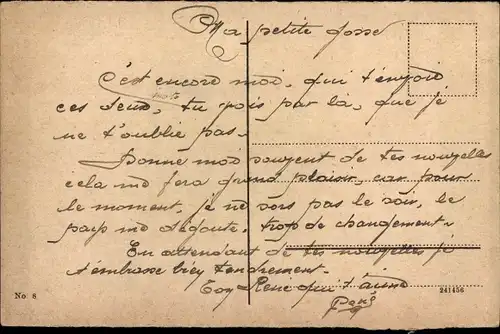 Ma petite gosse
C'est encore moi, qui t'envoie
ces deux mots, tu vois par là, que je
ne t'oublie pas.
Donne moi souvent de tes nouvelles
cela me fera grand plaisir, car pour
le moment, je ne sors pas le soir, le
pays me dégoute, trop de changement.
En attendant de tes nouvelles je
t'embrasse bien tendrement.
Ton René qui t'aime
René
No. 8
241456